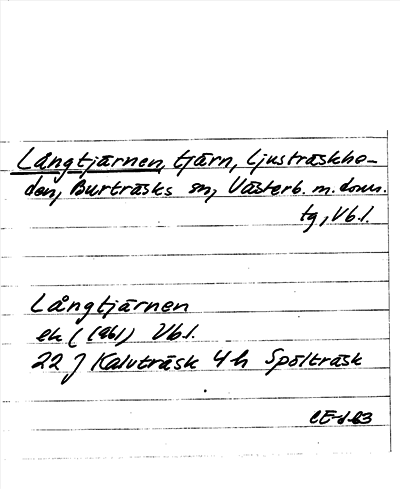 Långtjärnen, tjärn, Ljusträskbo-
den, Burträsks sn, Västerb. m. doms.
tg, Vb.l.
Långtjärnen
ek (1961) Vb.l.
22 J Kalvträsk 4 h Spölträsk